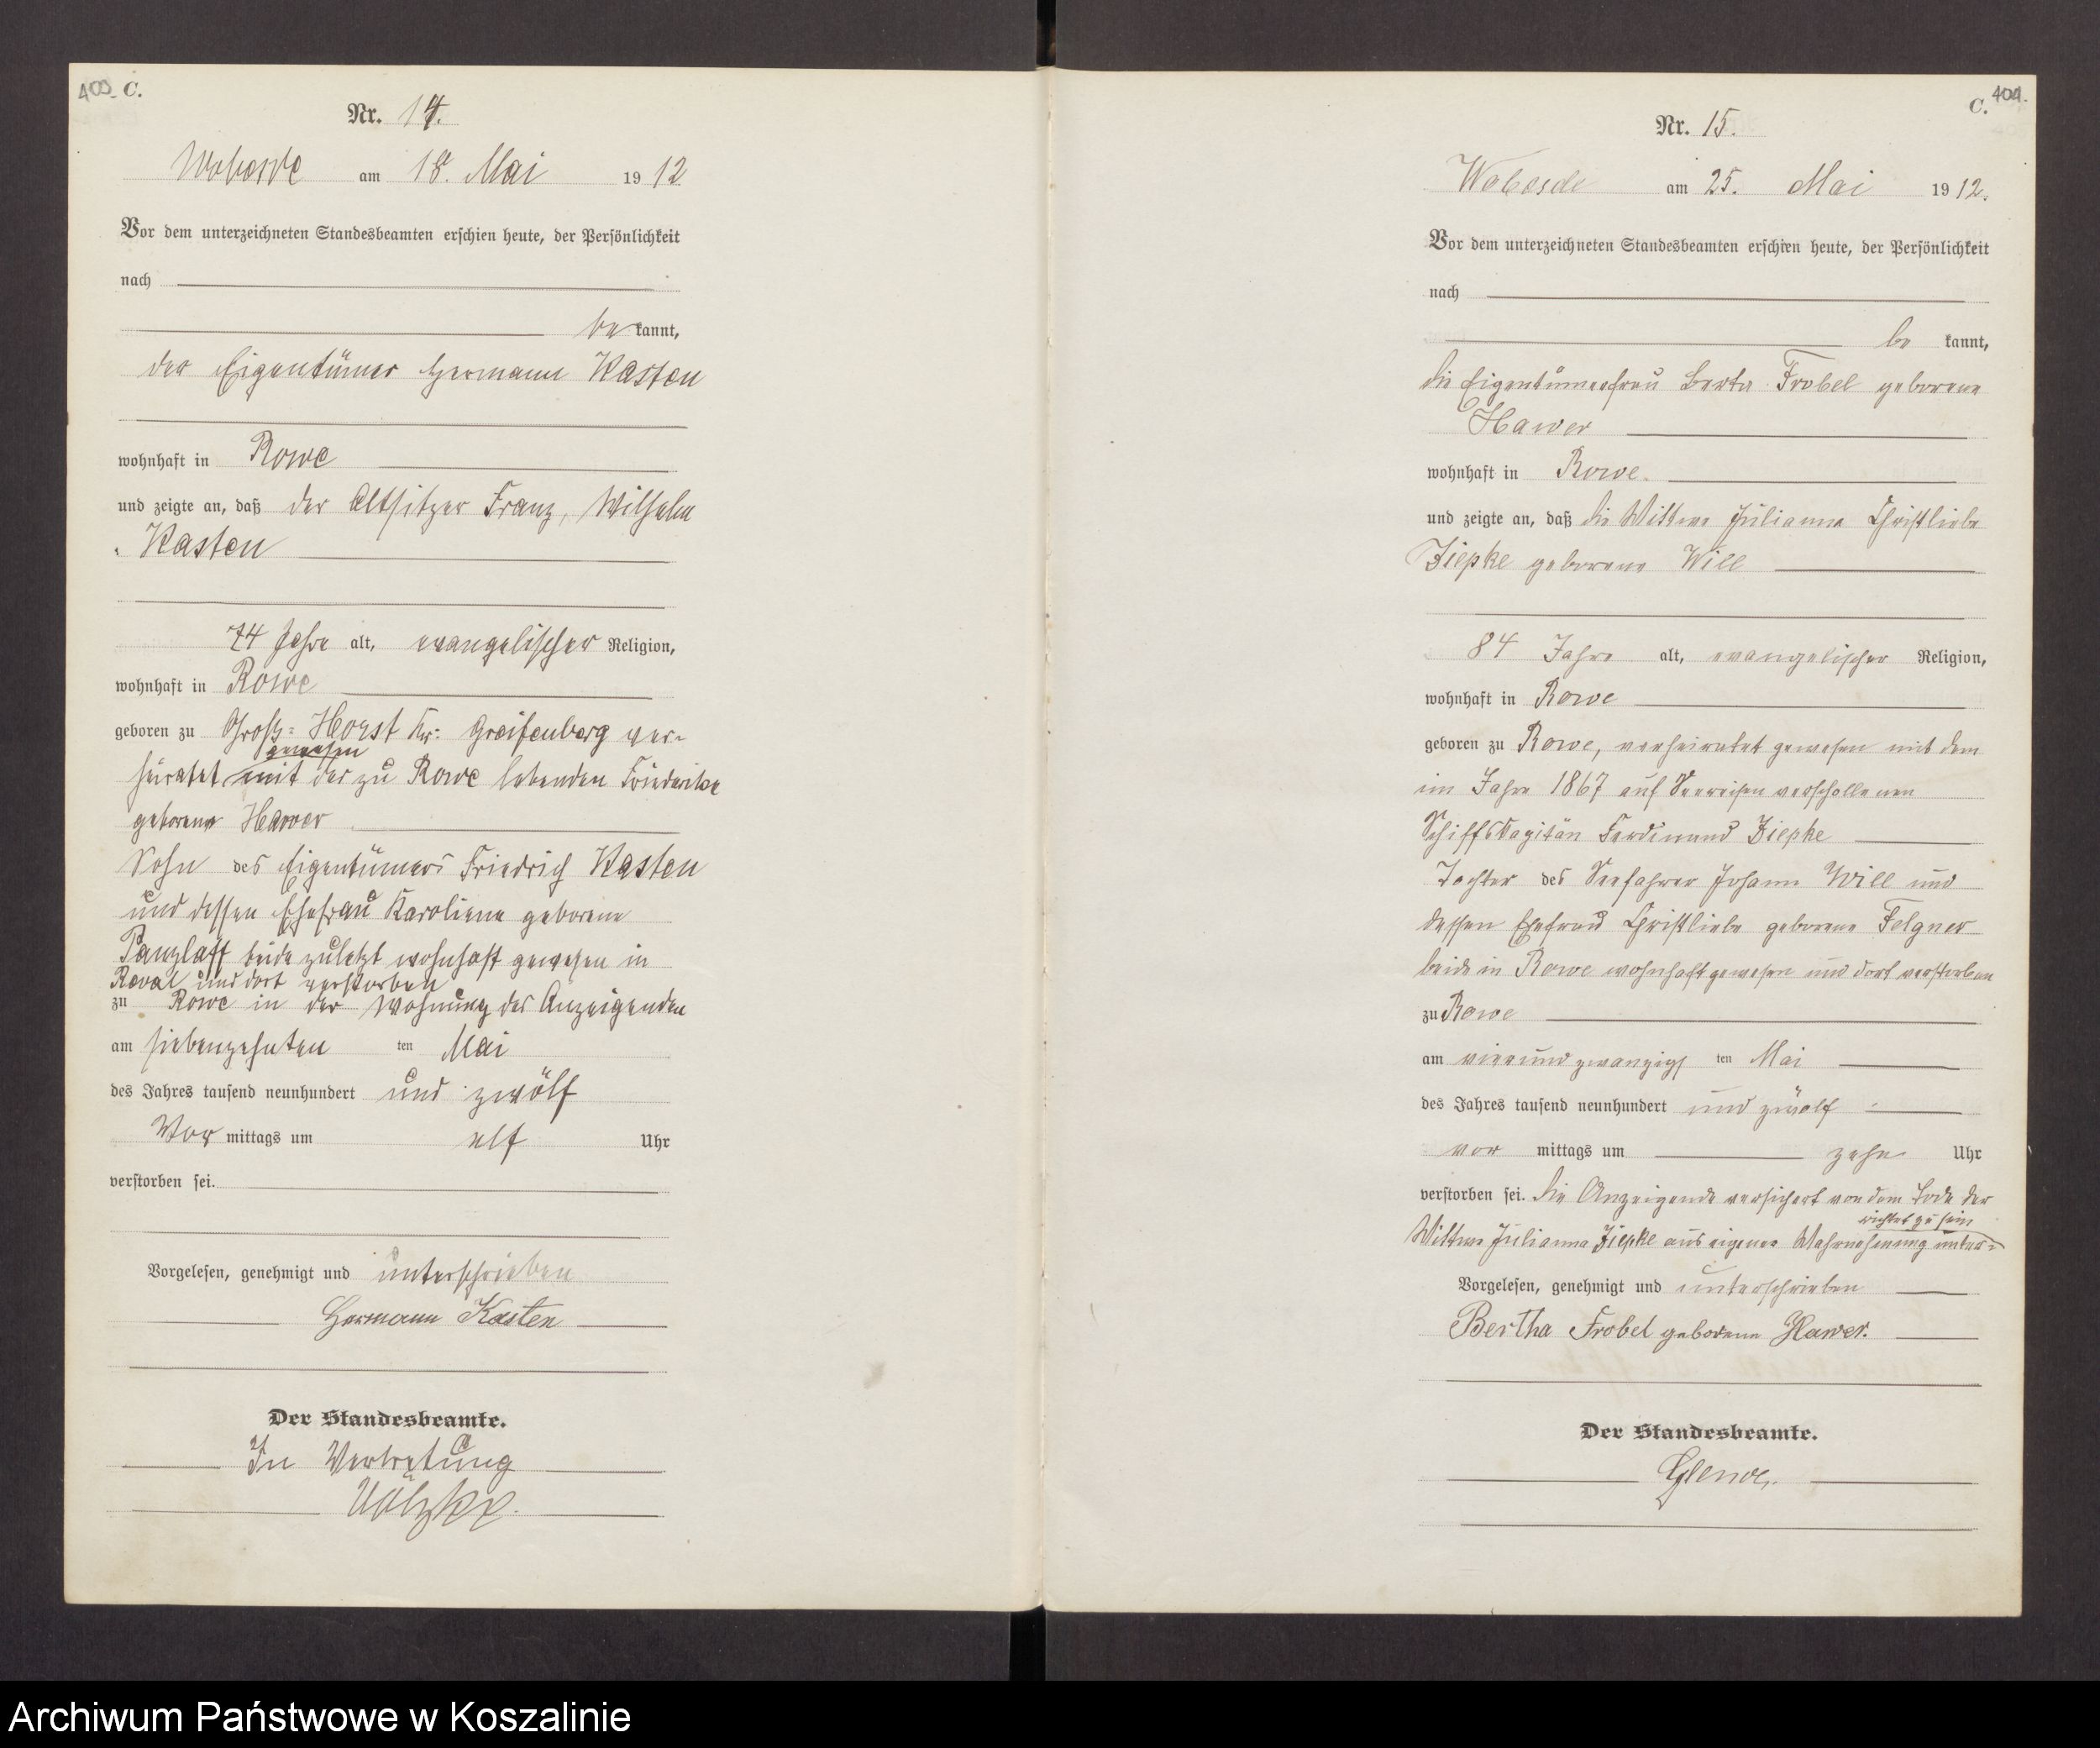 403. C.
Nr. 14.
Wobesde am 18. Mai 1912
Vor dem unterzeichneten Standesbeamten erschien heute, der Persönlichkeit
nach
bekannt,
der Eigentümer Hermann Kasten
wohnhaft in Rowe
und zeigte an, daß der Altsitzer Franz, Wilhelm
Kasten
74 Jahre alt, evangelischer Religion,
wohnhaft in Rowe
geboren zu Groß-Horst Kr: Greifenberg ver-
gewesen
heiratet mit der zu Rowe lebenden Friederike
geborene Hawer
Sohn des Eigentümers Friedrich Kasten
und dessen Ehefrau Karoliene geborene
Panzlaff beide zuletzt wohnhaft gewesen in
Reval und dort verstorben
zu Rowe in der Wohnung des Anzeigenden
am siebenzehnten ten Mai
des Jahres tausend neunhundert und zwölf
Vor mittags um elf Uhr
verstorben sei.
Vorgelesen, genehmigt und unterschrieben
Hermann Kasten
Der Standesbeamte.
In Vertretung
C. 404.
Nr. 15.
Wobesde am 25. Mai 1912.
Vor dem unterzeichneten Standesbeamten erschien heute, der Persönlichkeit
nach
be kannt,
die Eigentümerfrau Berta Frobel geborene
Hawer
wohnhaft in Rowe.
und zeigte an, daß die Wittwe Julianna Christliebe
Ziepke geborene Will
84 Jahre alt, evangelischer Religion,
wohnhaft in Rowe
geboren zu Rowe, verheiratet gewesen mit dem
im Jahre 1867 auf Seereisen verschollenen
Schiffskapitän Ferdinand Ziepke
Tochter des Seefahrer Johann Will und
dessen Ehefrau Christliebe geborene Felgner
beide in Rowe wohnhaft gewesen und dort verstorben
zu Rowe
am vierundzwanzigs ten Mai
des Jahres tausend neunhundert und zwölf
vor mittags um zehn Uhr
verstorben sei. Die Anzeigende versichert von dem Tode der
richtet zu sein
Wittwe Julianna Ziepke aus eigener Wahrnehmung unter-
Vorgelesen, genehmigt und unterschrieben
Bertha Frobel geborene Hawer.
Der Standesbeamte.
Archiwum Państwowe w Koszalinie